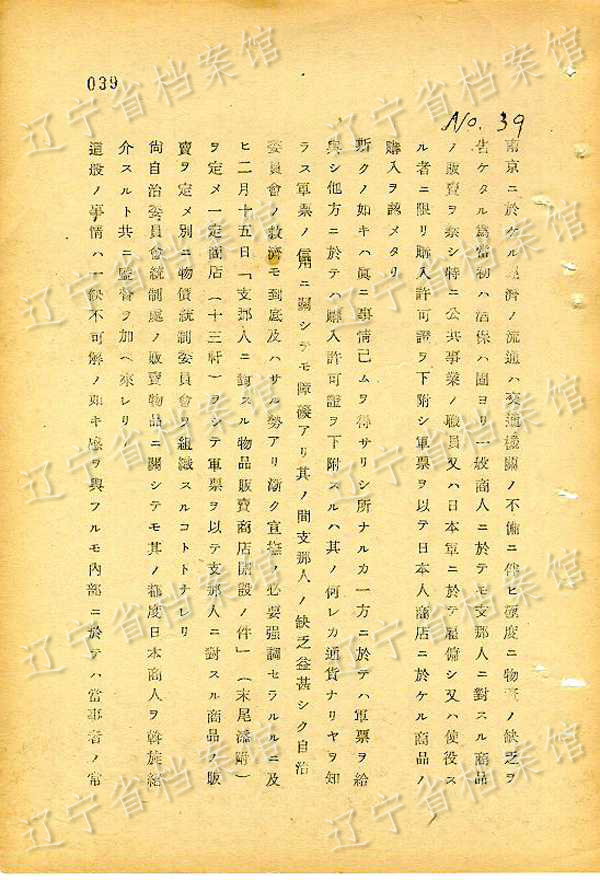 039
No. 39
南京ニ於ケル經濟ノ流通ハ交通機關ノ不備ニ伴ヒ極度ニ物資ノ缺乏ヲ
告ケタル爲當初ハ酒保ハ固ヨリ一般商人ニ於テモ支那人ニ對スル商品
ノ販賣ヲ禁シ特ニ公共事業ノ職員又ハ日本軍ニ於テ雇傭シ又ハ使役ス
ル者ニ限リ購入許可證ヲ下附シ軍票ヲ以テ日本人商店ニ於ケル商品ノ
購入ヲ認メタリ
斯クノ如キハ眞ニ事情已ムヲ得サリシ所ナルカ一方ニ於テハ軍票ヲ給
與シ他方ニ於テハ購入許可證ヲ下附スルハ其ノ何レカ通貨ナリヤヲ知
ラス軍票ノ信用ニ關シテモ障礙アリ其ノ間支那人ノ缺乏益甚シク自治
委員會ノ救濟モ到底及ハサル勢アリ漸ク宣撫ノ必要强調セラルルニ及
ヒ二月十五日「支那人ニ對スル物品販賣商店開設ノ件」(末尾添附)
ヲ定メ一定商店(十三軒)ヲシテ軍票ヲ以テ支那人ニ對スル商品ノ販
賣ヲ定メ別ニ物價統制委員會ヲ組織スルコトトナレリ
尙自治委員會統制處ノ販賣物品ニ關シテモ其ノ都度日本商人ヲ斡旋紹
介スルト共ニ監督ヲ加ヘ來レリ
這般ノ事情ハ一缺不可解ノ如キ感ヲ與フルモ內部ニ於テハ當事者ノ常
辽宁省档案馆
辽宁省档案馆
辽宁省档案馆
辽宁省档案馆
辽宁省档案馆
辽宁省档案馆
辽宁省档案馆
辽宁省档案馆
辽宁省档案馆
辽宁省档案馆